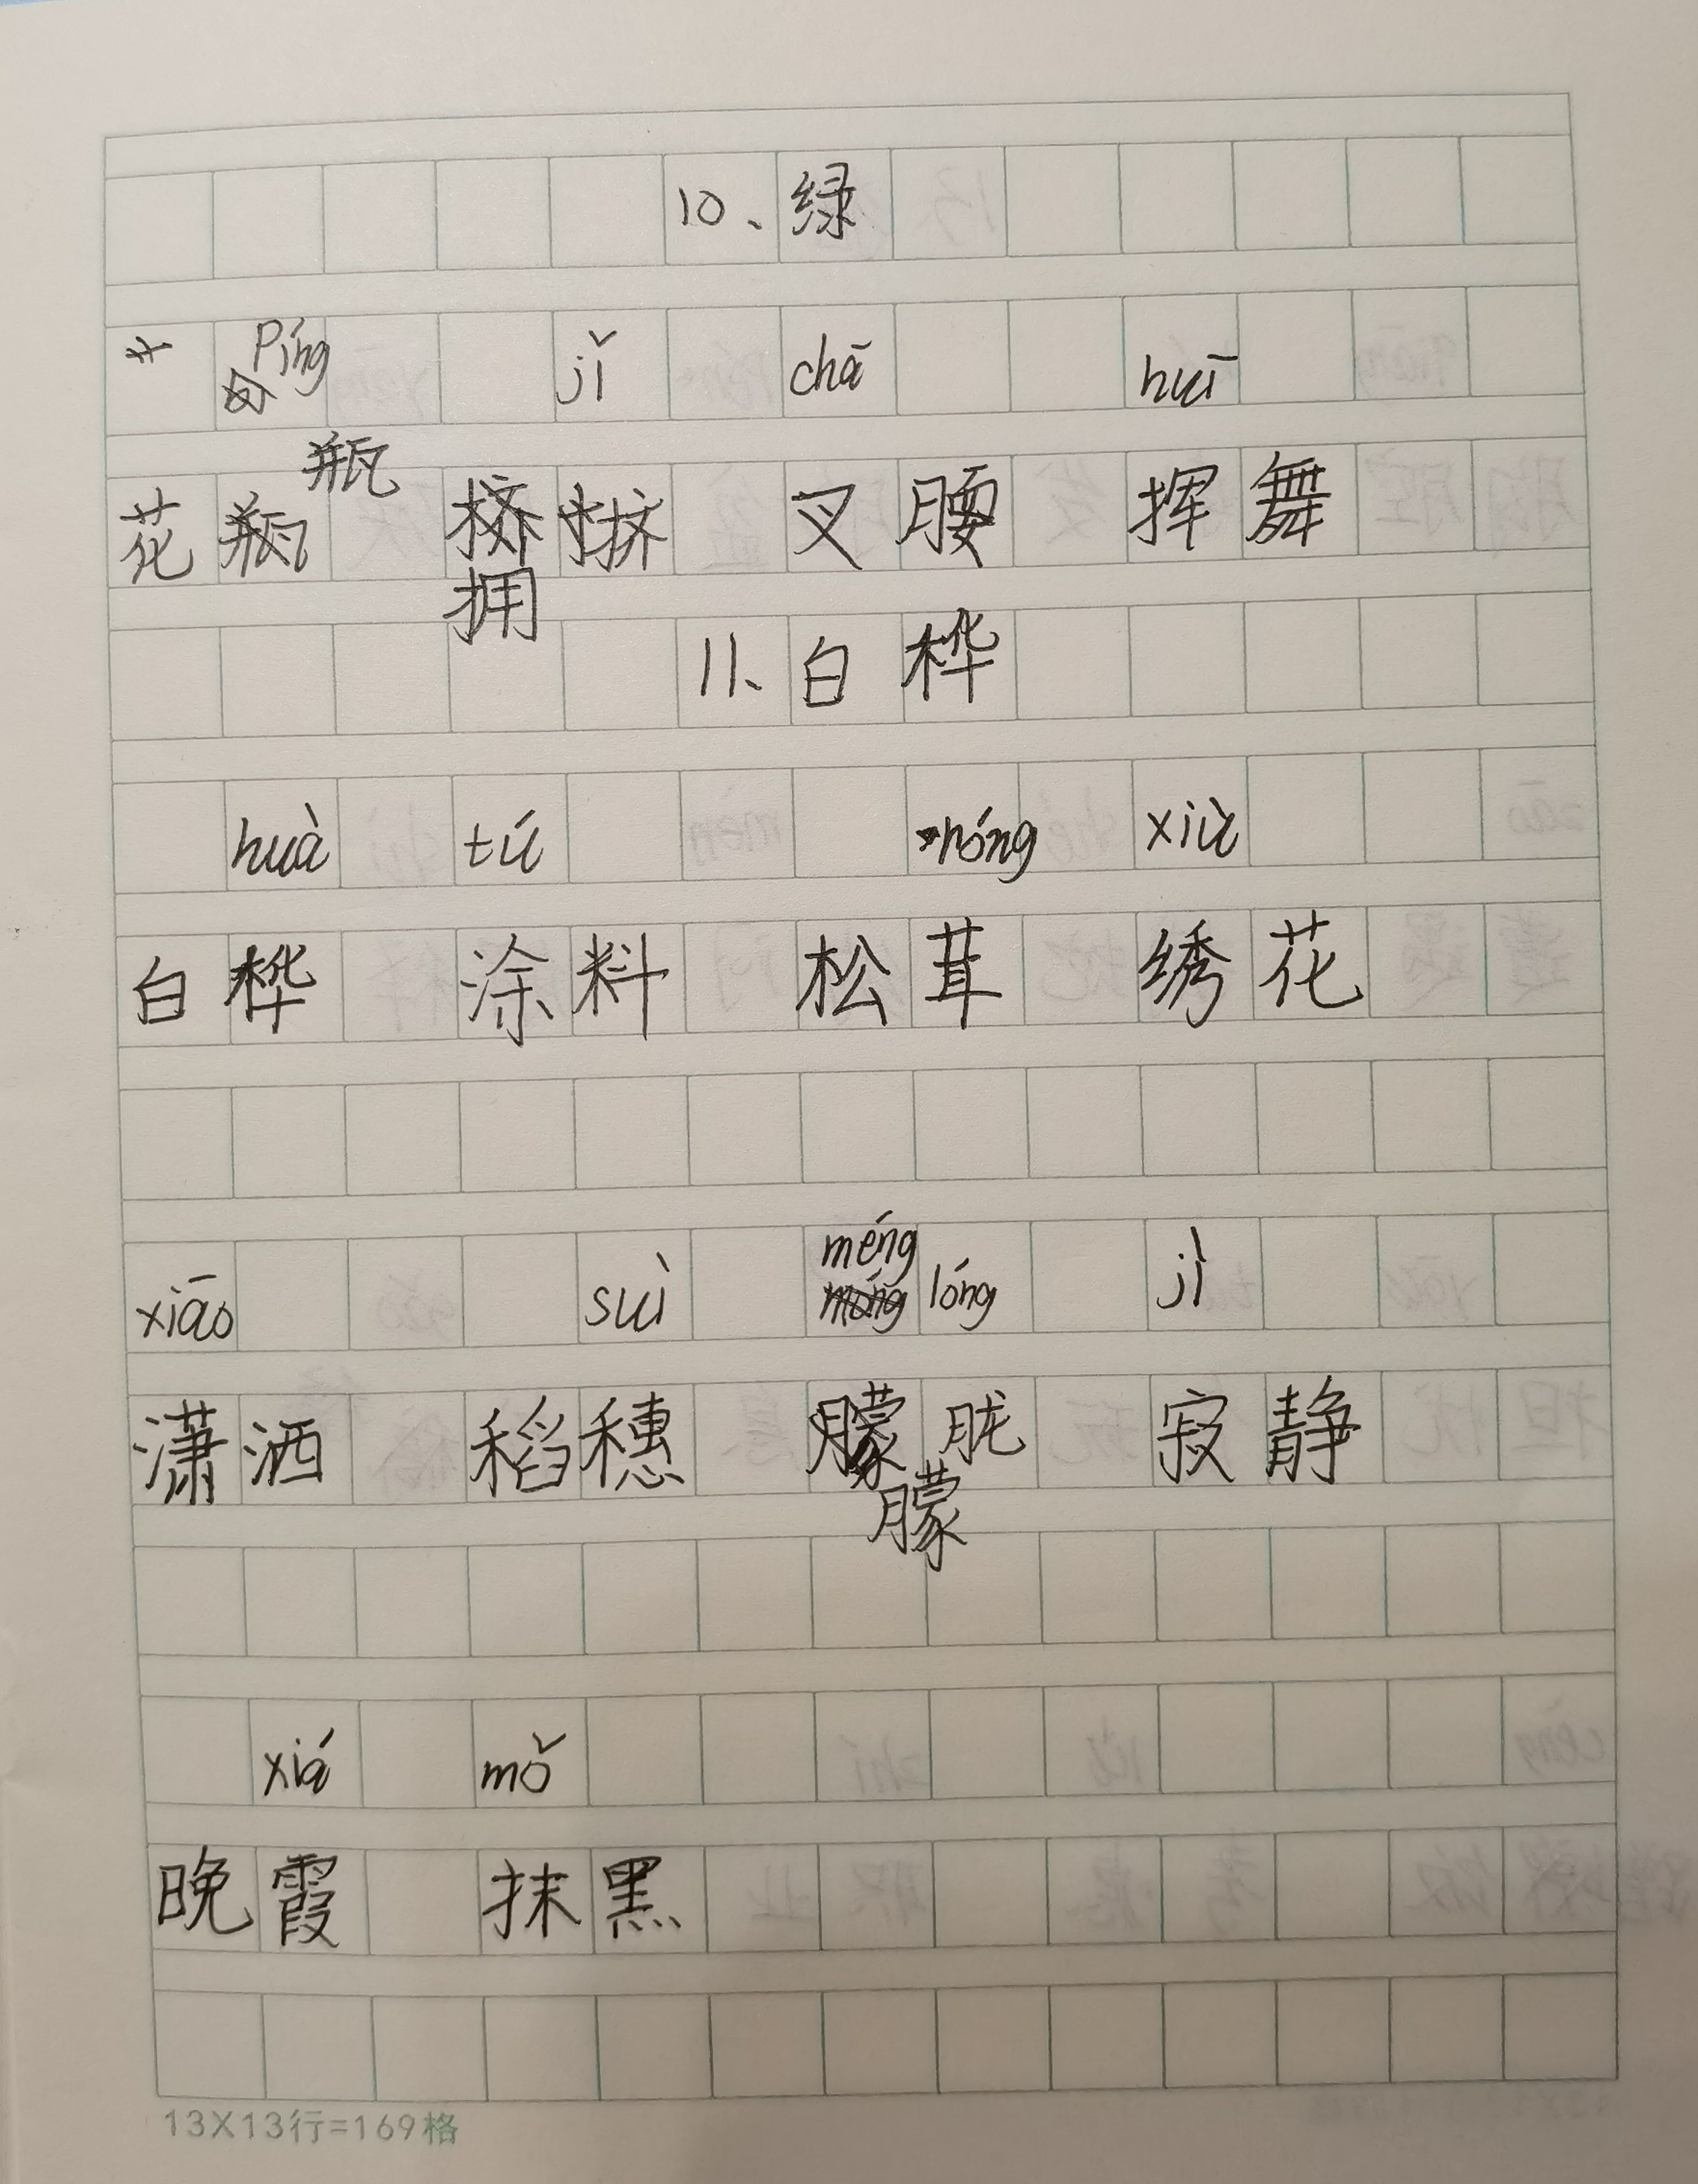 10、绿
píng jǐ chā huī
瓶
花 挤 叉腰 挥舞
拥
11、白桦
huà tú róng xiù
白桦 涂料 松茸 绣花
méng
xiāo suì lóng jì
潇洒 稻穗 胧 寂静
朦
xiá mǒ
晚霞 抹黑
13X13行=169格